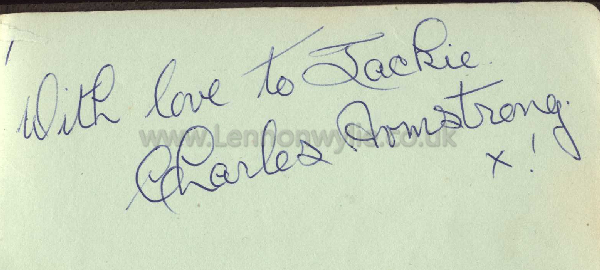 With love to Jackie.
www.Lennonwylie.co.uk
Charles Armstrong.
x!